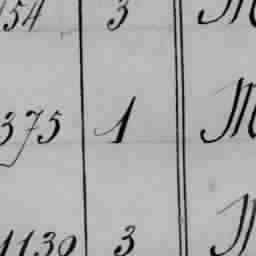 154 3 M
375 1 M
1130 3 M